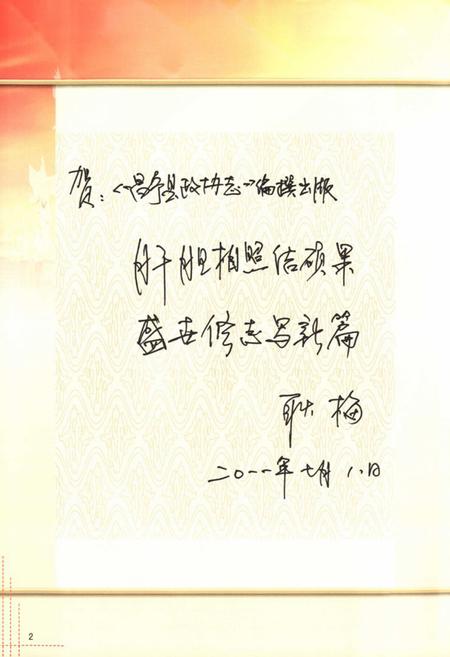 贺：《昌宁县政协志》编撰出版
肝胆相照结硕果
盛世修志写新篇
耿梅
二〇一一年七月八日
2